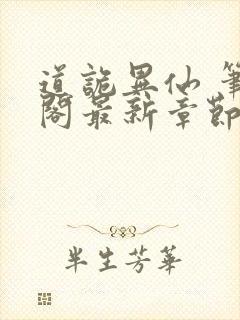 道詭異仙 筆
閣最新章節
半生芳華